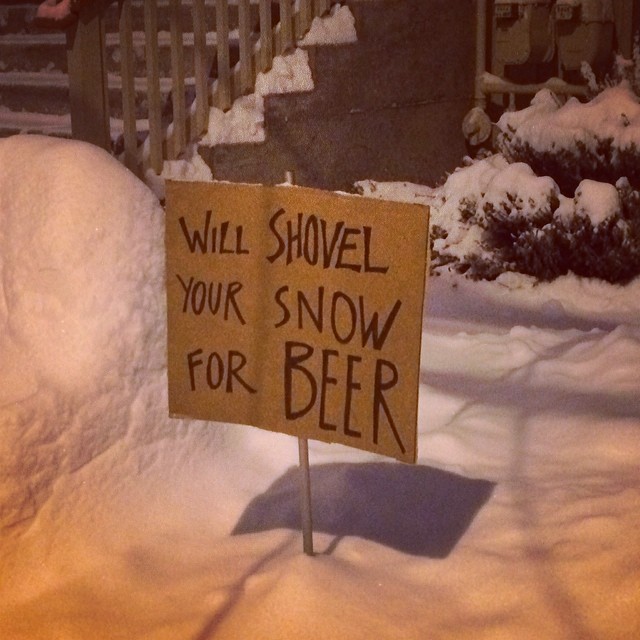 WILL SHOVEL
YOUR SNOW
FOR BEER